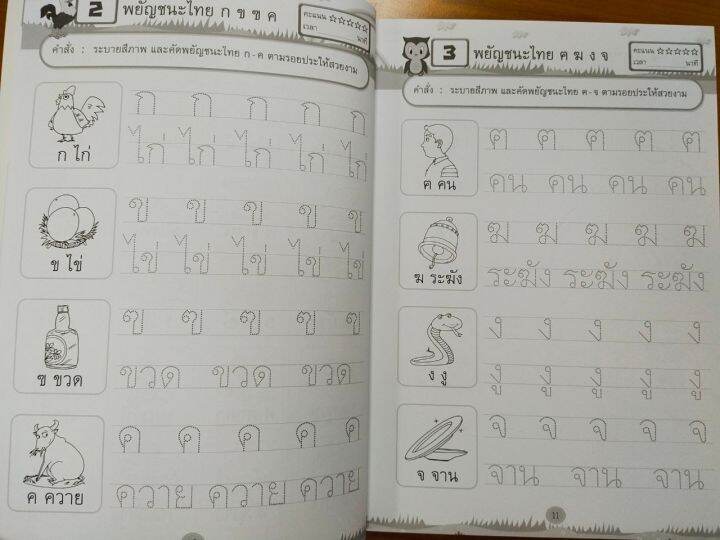 2 พยัญชนะไทย ก ข ฃ ค
คะแนน ☆☆☆☆☆
เวลา นาที
คำสั่ง : ระบายสีภาพ และคัดพยัญชนะไทย ก - ค ตามรอยประให้สวยงาม
ก ก ก ก ก
ไก่ ไก่ ไก่ ไก่ ไก่
ก ไก่
ข ข ข ข ข
ไข่ ไข่ ไข่ ไข่ ไข่
ข ไข่
ฃ ฃ ฃ ฃ ฃ
ขวด ขวด ขวด
ฃ ขวด
ค ค ค ค ค
ควาย ควาย ควาย
ค ควาย
3 พยัญชนะไทย ฅ ฆ ง จ
คะแนน ☆☆☆☆☆
เวลา นาที
คำสั่ง : ระบายสีภาพ และคัดพยัญชนะไทย ฅ - จ ตามรอยประให้สวยงาม
ฅ ฅ ฅ ฅ ฅ
คน คน คน คน
ฅ คน
ฆ ฆ ฆ ฆ ฆ
ระฆัง ระฆัง ระฆัง
ฆ ระฆัง
ง ง ง ง ง
งู งู งู งู งู
ง งู
จ จ จ จ จ
จาน จาน จาน
จ จาน
11